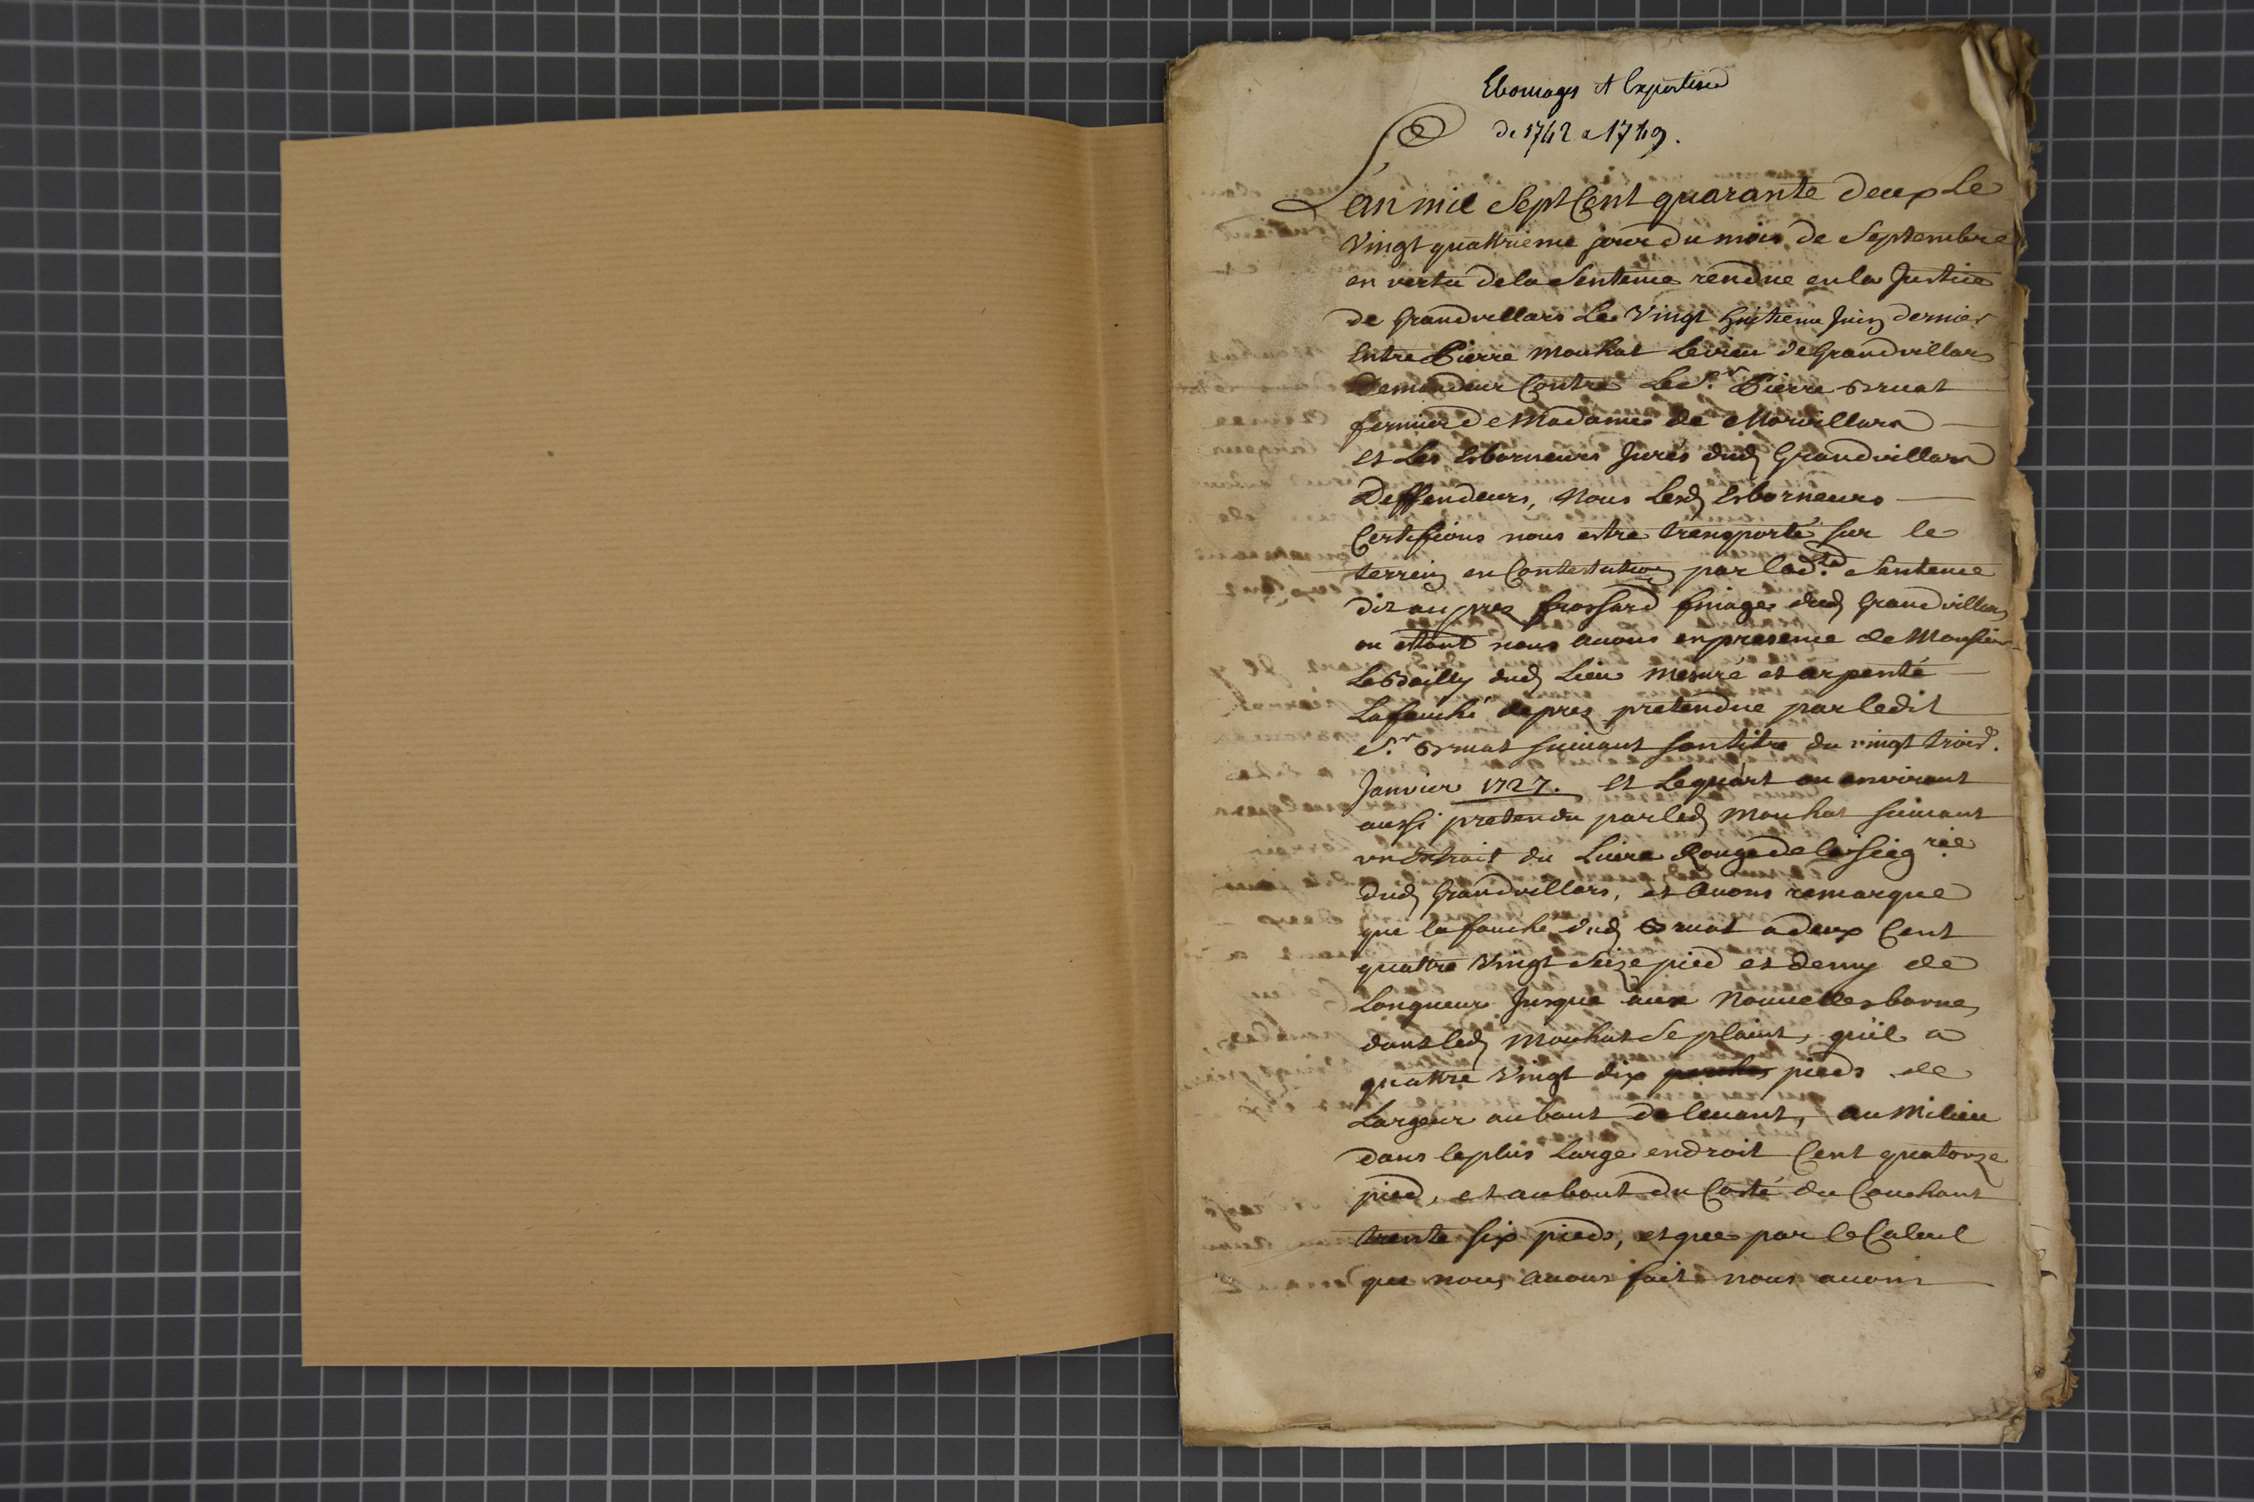 Ebornages et Expertises
de 1742 a 1749.
L'an mil Sept Cent quarante deux Le
Vingt quattrieme jour du mois de Septembre
en vertu de la Sentence rendue en la Justice
de Grandvillars Le Vingt huitieme Juin dernier
Entre Pierre Mouhat Levieu de Grandvillars
Demandeur Contre Le S.r Pierre Bruat
fermier de Madame de Morvillars
et Les Esborneurs Jurés dud Grandvillars
Deffendeurs, Nous Lesd Esborneurs
Certifions nous estre transporté sur le
terrein en Contestation par lad.te Sentence
dit au prez frossard finage dud Grandvillars
ou estant nous auons en presence de Monsieur
Le Bailly dud Lieu Mesuré et arpenté
La fauché de prez pretendue par ledit
S.r Bruat suiuant son titre du vingt trois.
Janvier 1727. et Le quart ou environt
aussi pretendu par led Mouhat suiuant
un Extrait du Liure Rouge de la Seigrie
dud Grandvillars, et Auons remarque
que la fauche dud Bruat a deux Cent
quattre Vingt Seize pied et demy de
Longueur Jusque aux Nouuelles borne
dont led Mouhat Se plaint, qu'il a
quattre Vingt dix pieds de
Largeur au bout de leuant, au Milieu
dans le plus Large endroit Cent quatorze
pied, et au bout du Costé du Couchant
trente six pieds, et que par le Calcul
que nous auons fait nous auons